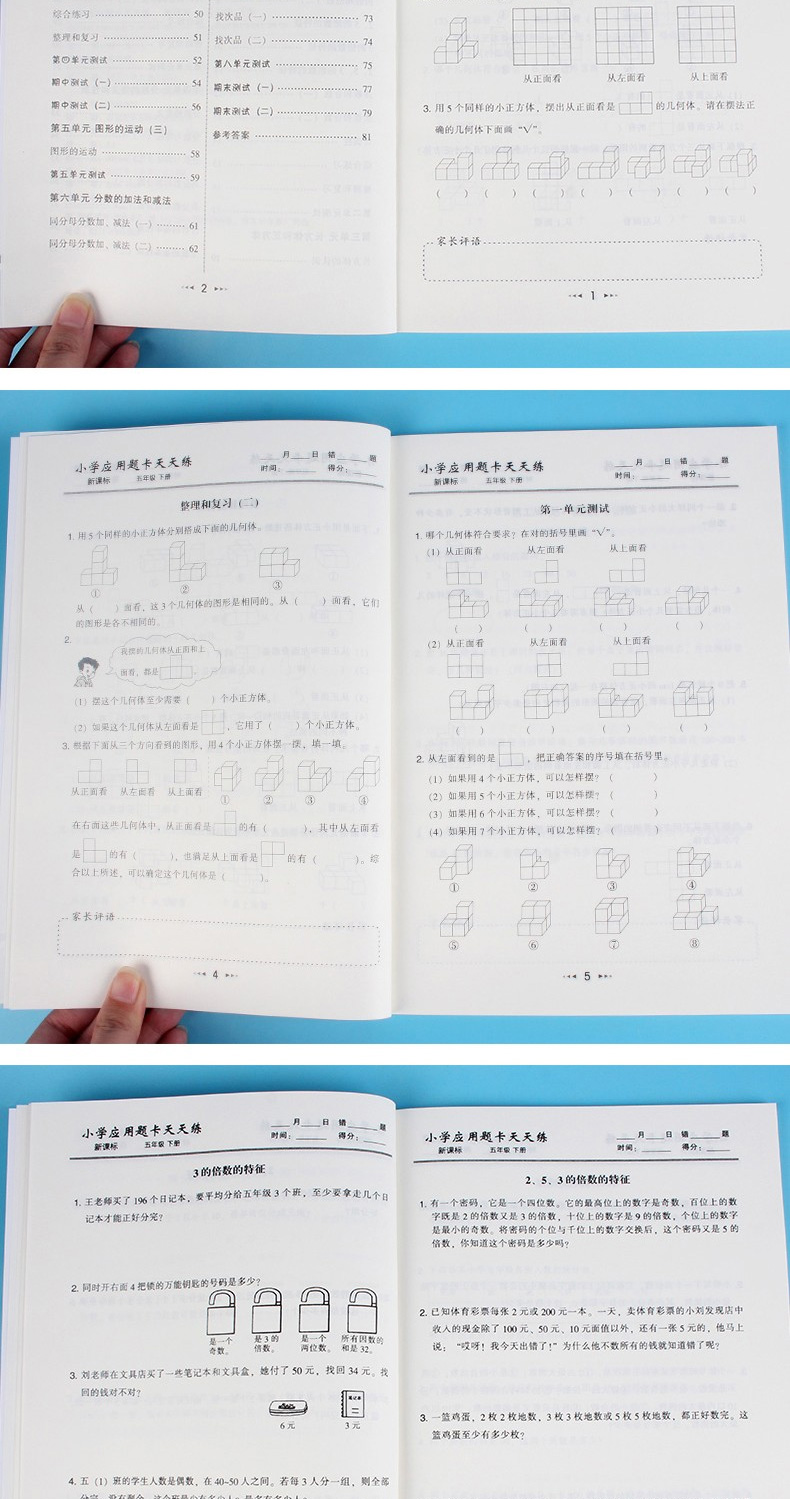 综合练习 50
整理和复习 51
第四单元测试 52
期中测试（一） 54
期中测试（二） 56
第五单元 图形的运动（三）
图形的运动 58
第五单元测试 59
第六单元 分数的加法和减法
同分母分数加、减法（一） 61
同分母分数加、减法（二） 62
找次品（一） 73
找次品（二） 74
第八单元测试 75
期末测试（一） 77
期末测试（二） 79
参考答案 81
2
从正面看 从左面看 从上面看
3. 用5个同样的小正方体，摆出从正面看是 的几何体。请在摆法正
确的几何体下面画“√”。
（ ）（ ）（ ）（ ）（ ）（ ）（ ）
家长评语
1
小学应用题卡天天练
新课标 五年级 下册
月 日 错 题
时间： 得分：
整理和复习（二）
1. 用5个同样的小正方体分别搭成下面的几何体。
① ② ③
从（ ）面看，这3个几何体的图形是相同的。从（ ）面看，它们
的图形是各不相同的。
2.
我摆的几何体从正面和上
面看，都是
（1）摆这个几何体至少需要（ ）个小正方体。
（2）如果这个几何体从左面看是 ，它用了（ ）个小正方体。
3. 根据下面从三个方向看到的图形，用4个小正方体摆一摆，填一填。
从正面看 从左面看 从上面看 ① ② ③ ④
在右面这些几何体中，从正面看是 的有（ ），其中从左面看
是 的有（ ），也满足从上面看是 的有（ ）。综
合以上所述，可以确定这个几何体是（ ）。
家长评语
4
小学应用题卡天天练
新课标 五年级 下册
月 日 错 题
时间： 得分：
第一单元测试
1. 哪个几何体符合要求？在对的括号里画“√”。
（1）从正面看 从左面看 从上面看
（ ） （ ） （ ） （ ）
（2）从正面看 从左面看 从上面看
（ ） （ ） （ ） （ ）
2. 从左面看到的是 ，把正确答案的序号填在括号里。
（1）如果用4个小正方体，可以怎样摆？（ ）
（2）如果用5个小正方体，可以怎样摆？（ ）
（3）如果用6个小正方体，可以怎样摆？（ ）
（4）如果用7个小正方体，可以怎样摆？（ ）
① ② ③ ④
⑤ ⑥ ⑦ ⑧
5
小学应用题卡天天练
新课标 五年级 下册
月 日 错 题
时间： 得分：
3的倍数的特征
1. 王老师买了196个日记本，要平均分给五年级3个班，至少要拿走几个日
记本才能正好分完？
2. 同时开右面4把锁的万能钥匙的号码是多少？
是一个 是3的 是一个 所有因数的
奇数。 倍数。 两位数。 和是32。
3. 刘老师在文具店买了一些笔记本和文具盒，她付了50元，找回34元。找
回的钱对不对？
笔记本
6元 3元
4. 五（1）班的学生人数是偶数，在40~50人之间。若每3人分一组，则全部
小学应用题卡天天练
新课标 五年级 下册
月 日 错 题
时间： 得分：
2、5、3的倍数的特征
1. 有一个密码，它是一个四位数。它的最高位上的数字是奇数，百位上的数
字既是2的倍数又是3的倍数，十位上的数字是9的倍数，个位上的数字
是最小的奇数。将密码的个位与千位上的数字交换后，这个密码又是5的
倍数，你知道这个密码是多少吗？
2. 已知体育彩票每张2元或200元一本。一天，卖体育彩票的小刘发现店中
收入的现金除了100元、50元、10元面值以外，还有一张5元的，他马上
说：“哎呀！我今天出错了！”为什么他不数所有的钱就知道错了呢？
3. 一篮鸡蛋，2枚2枚地数，3枚3枚地数或5枚5枚地数，都正好数完。这
篮鸡蛋至少有多少枚？